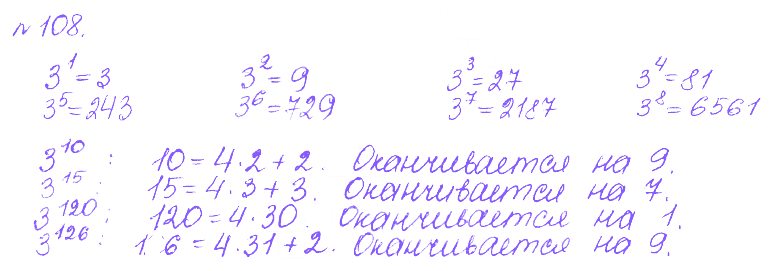 № 108.
3¹ = 3 3² = 9 3³ = 27 3⁴ = 81
3⁵ = 243 3⁶ = 729 3⁷ = 2187 3⁸ = 6561
3¹⁰ : 10 = 4·2 + 2. Оканчивается на 9.
3¹⁵ : 15 = 4·3 + 3. Оканчивается на 7.
3¹²⁰ : 120 = 4·30. Оканчивается на 1.
3¹²⁶ : 1 6 = 4·31 + 2. Оканчивается на 9.